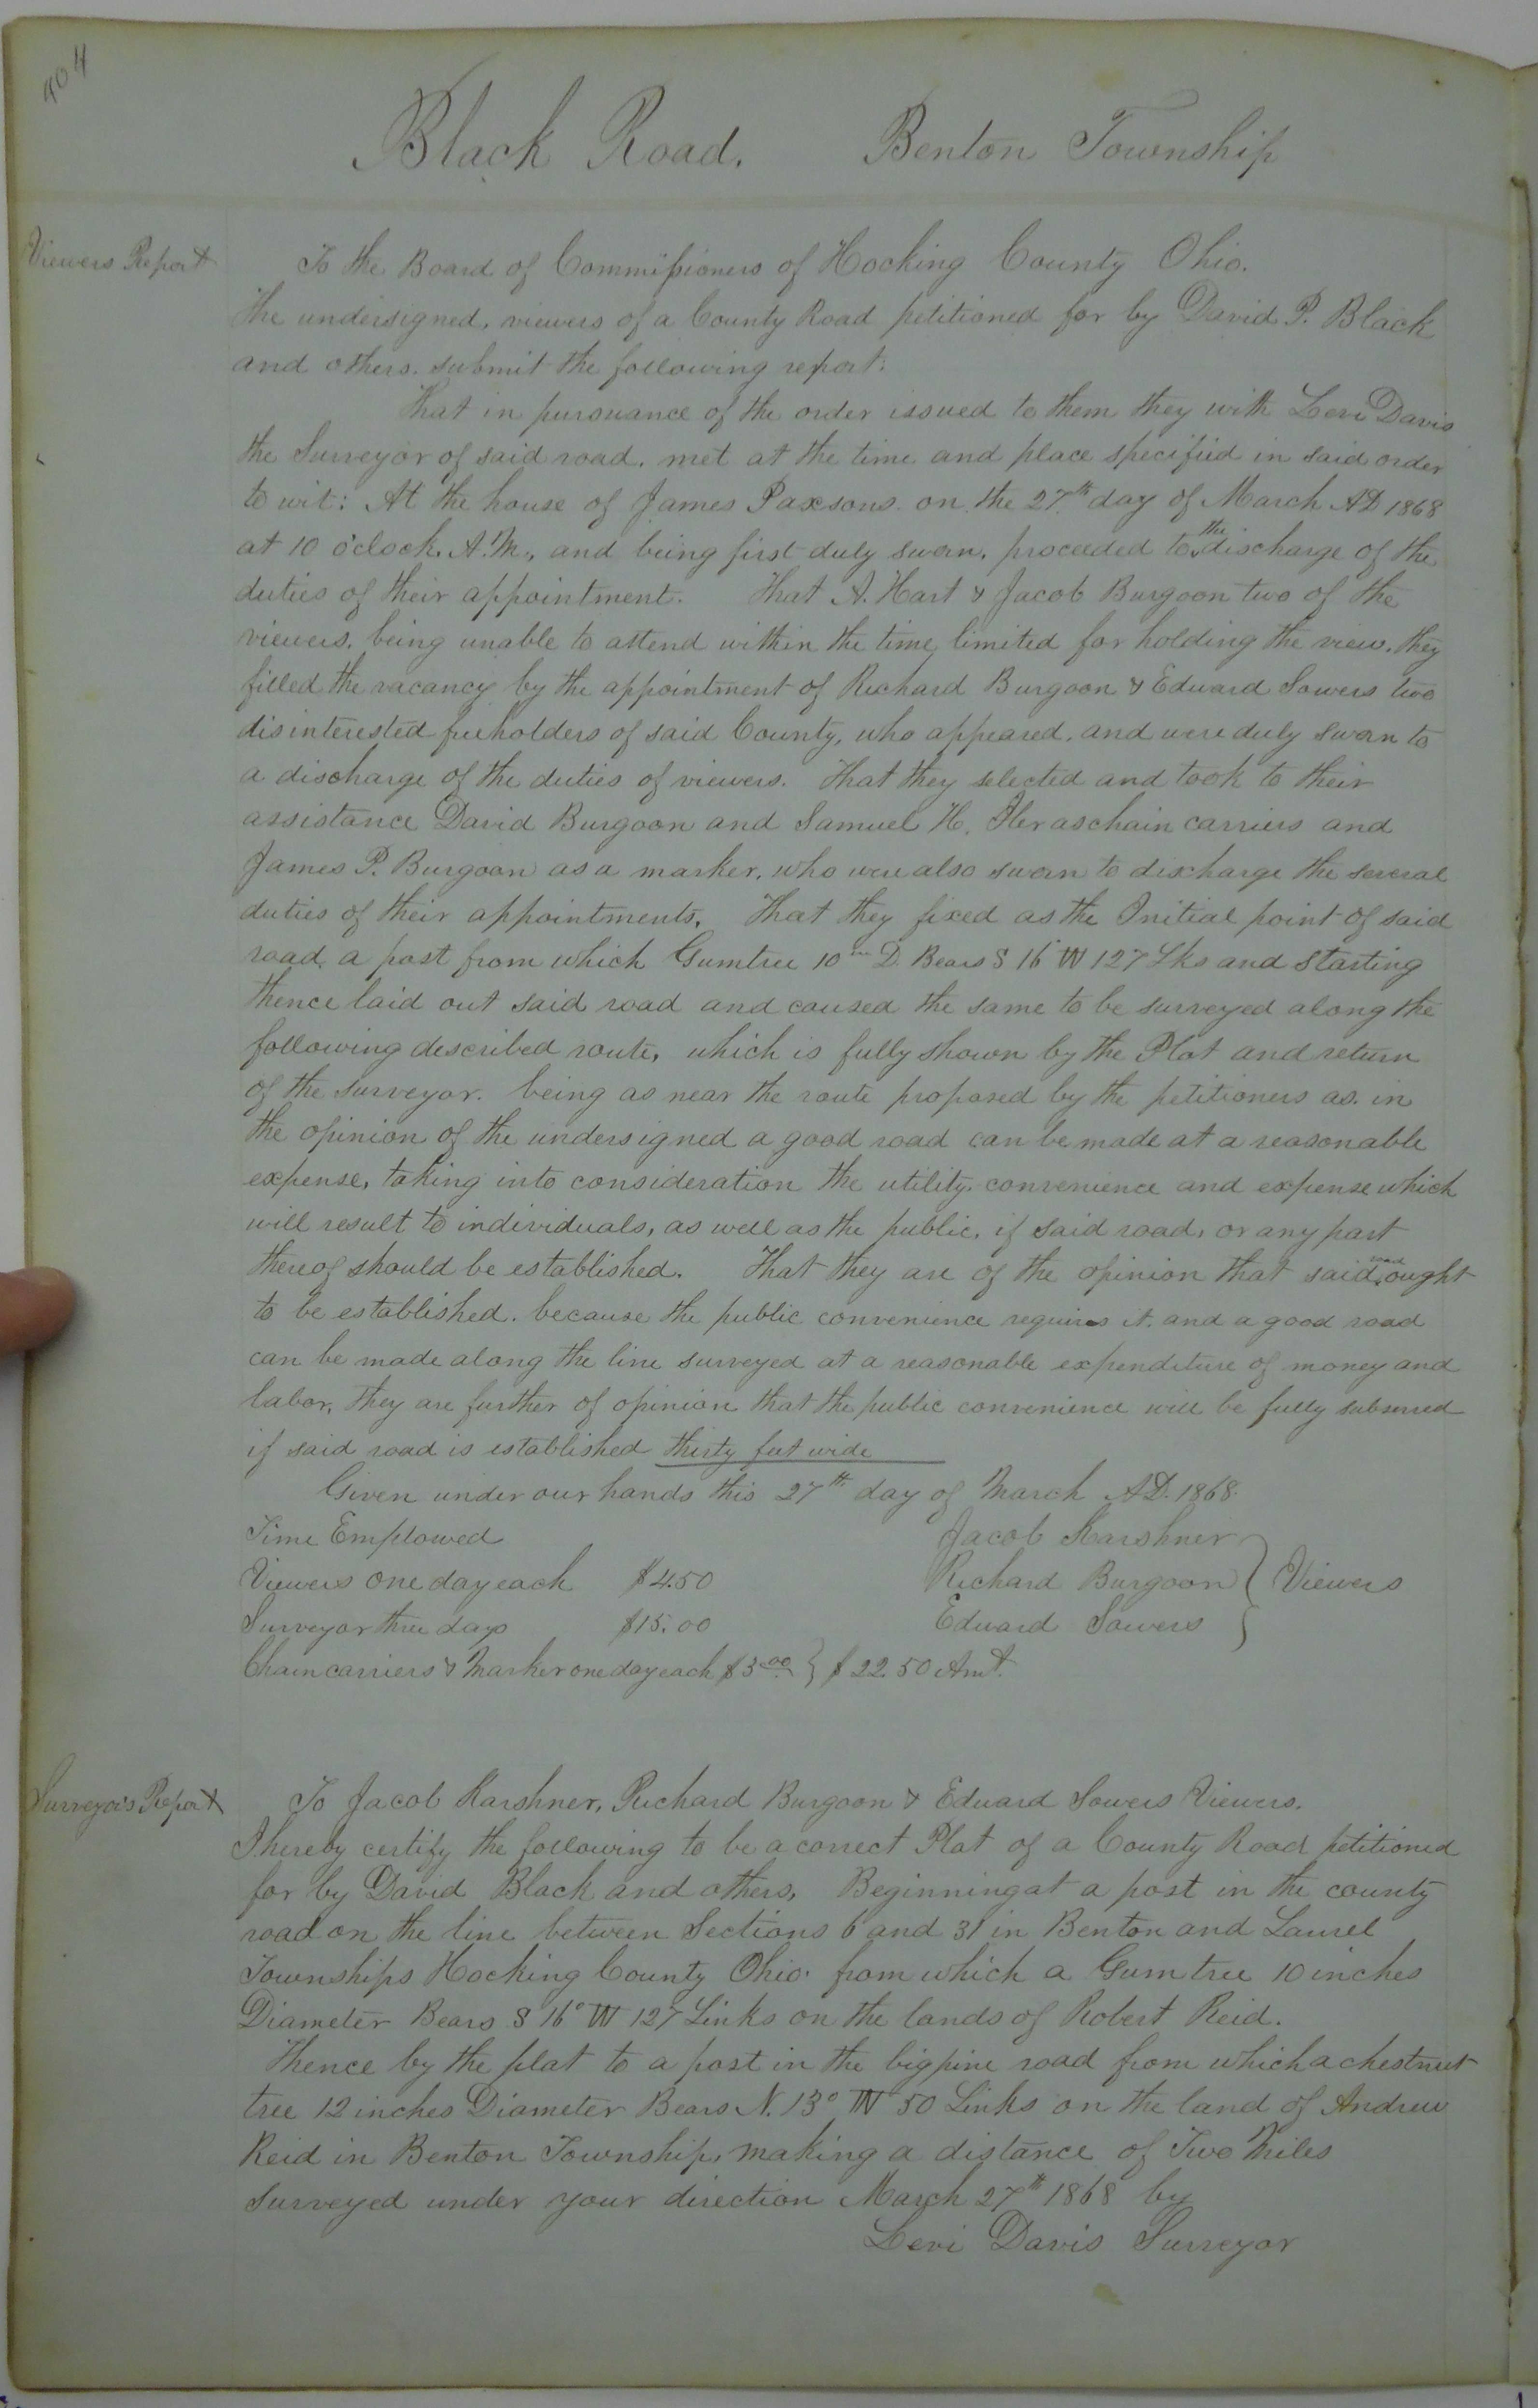 404
Black Road. Benton Township
Viewers Report
To the Board of Commissioners of Hocking County Ohio.
The undersigned, viewers of a County Road petitioned for by David P. Black
and others. submit the following report:
That in pursuance of the order issued to them they with Levi Davis
the Surveyor of said road. met at the time and place specified in said order
to wit: At the house of James Paxsons. on the 27th day of March AD 1868
at 10 o'clock, A.M., and being first duly sworn, proceeded to the discharge of the
duties of their appointment. That A. Hart & Jacob Burgoon two of the
viewers, being unable to attend within the time limited for holding the view, they
filled the vacancy by the appointment of Richard Burgoon & Edward Sowers two
disinterested freeholders of said County, who appeared, and were duly sworn to
a discharge of the duties of viewers. That they selected and took to their
assistance David Burgoon and Samuel H. as chain carriers and
James P. Burgoon as a marker, who were also sworn to discharge the several
duties of their appointments, That they fixed as the Initial point of said
road, a post from which Gumtree 10 in D. Bears S 16° W 127 Lks and starting
thence laid out said road and caused the same to be surveyed along the
following described route, which is fully shown by the Plat and return
of the surveyor. being as near the route proposed by the petitioners as. in
the opinion of the undersigned a good road can be made at a reasonable
expense, taking into consideration the utility, convenience and expense which
will result to individuals, as well as the public, if said road, or any part
thereof should be established. That they are of the opinion that said road ought
to be established. because the public convenience requires it. and a good road
can be made along the line surveyed at a reasonable expenditure of money and
labor, they are further of opinion that the public convenience will be fully subserved
if said road is established thirty feet wide
Given under our hands this 27th day of March AD. 1868.
Time Emplowed
Jacob Karshner
Viewers one day each $4.50
Richard Burgoon } Viewers
Surveyor three days $15.00
Edward Sowers
Chain carriers & Marker one day each $3.00 } $22.50 Amt.
Surveyors Report
To Jacob Karshner, Richard Burgoon & Edward Sowers Viewers.
I hereby certify the following to be a correct Plat of a County Road petitioned
for by David Black and others, Beginning at a post in the county
road on the line between Sections 6 and 31 in Benton and Laurel
Townships Hocking County Ohio. from which a Gum tree 10 inches
Diameter Bears S 16° W 127 Links on the lands of Robert Reid.
Thence by the plat to a post in the big pine road from which a chestnut
tree 12 inches Diameter Bears N. 13° W 50 Links on the land of Andrew
Reid in Benton Township, making a distance of Two Miles
Surveyed under your direction March 27th 1868 by
Levi Davis Surveyor